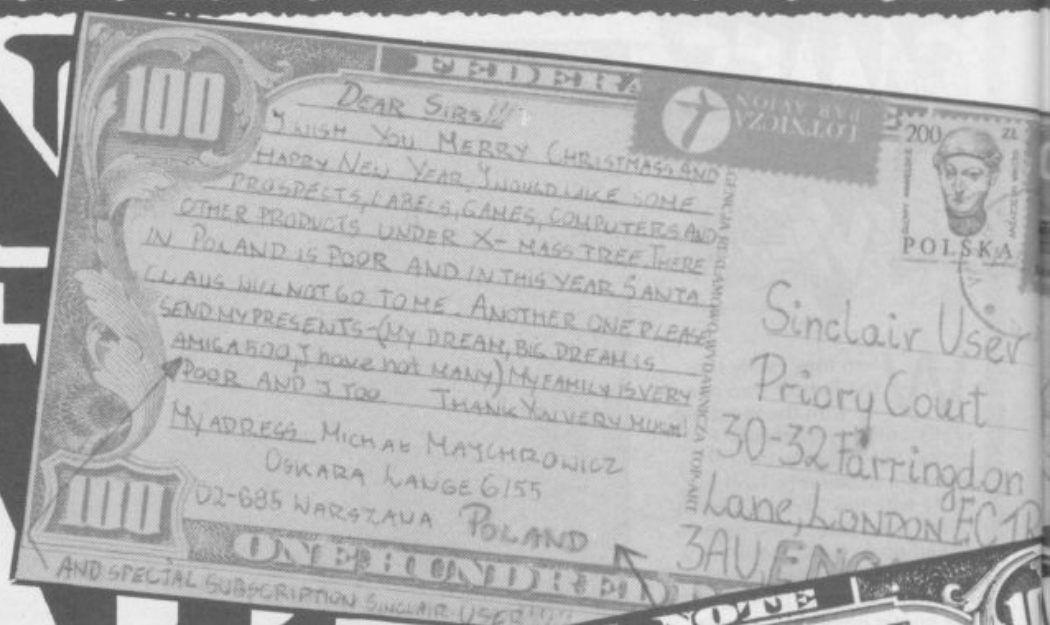 FEDERA
100
DEAR SIRS!!!
I WISH YOU MERRY CHRISTMASS AND
HAPPY NEW YEAR, I WOULD LIKE SOME
PROSPECTS, LABELS, GAMES, COMPUTERS AND
OTHER PRODUCTS UNDER X-MASS TREE. THERE
IN POLAND IS POOR AND IN THIS YEAR SANTA
CLAUS WILL NOT GO TO ME. ANOTHER ONE PLEASE
SEND MY PRESENTS-(MY DREAM, BIG DREAM IS
AMIGA 500, I have not MANY) MY FAMILY IS VERY
POOR AND I TOO THANK YOU VERY MUCH!
MY ADRESS MICHAŁ MAJCHROWICZ
OSKARA LANGE 6/55
02-685 WARSZAWA POLAND
100
ONE HUNDRED
AND SPECIAL SUBSCRIPTION SINCLAIR USER!!!!
LOTNICZA
PAR AVION
200 ZŁ
POLSKA
Sinclair User
Priory Court
30-32 Farringdon
Lane, LONDON EC1R
3AU, ENG
NOTE